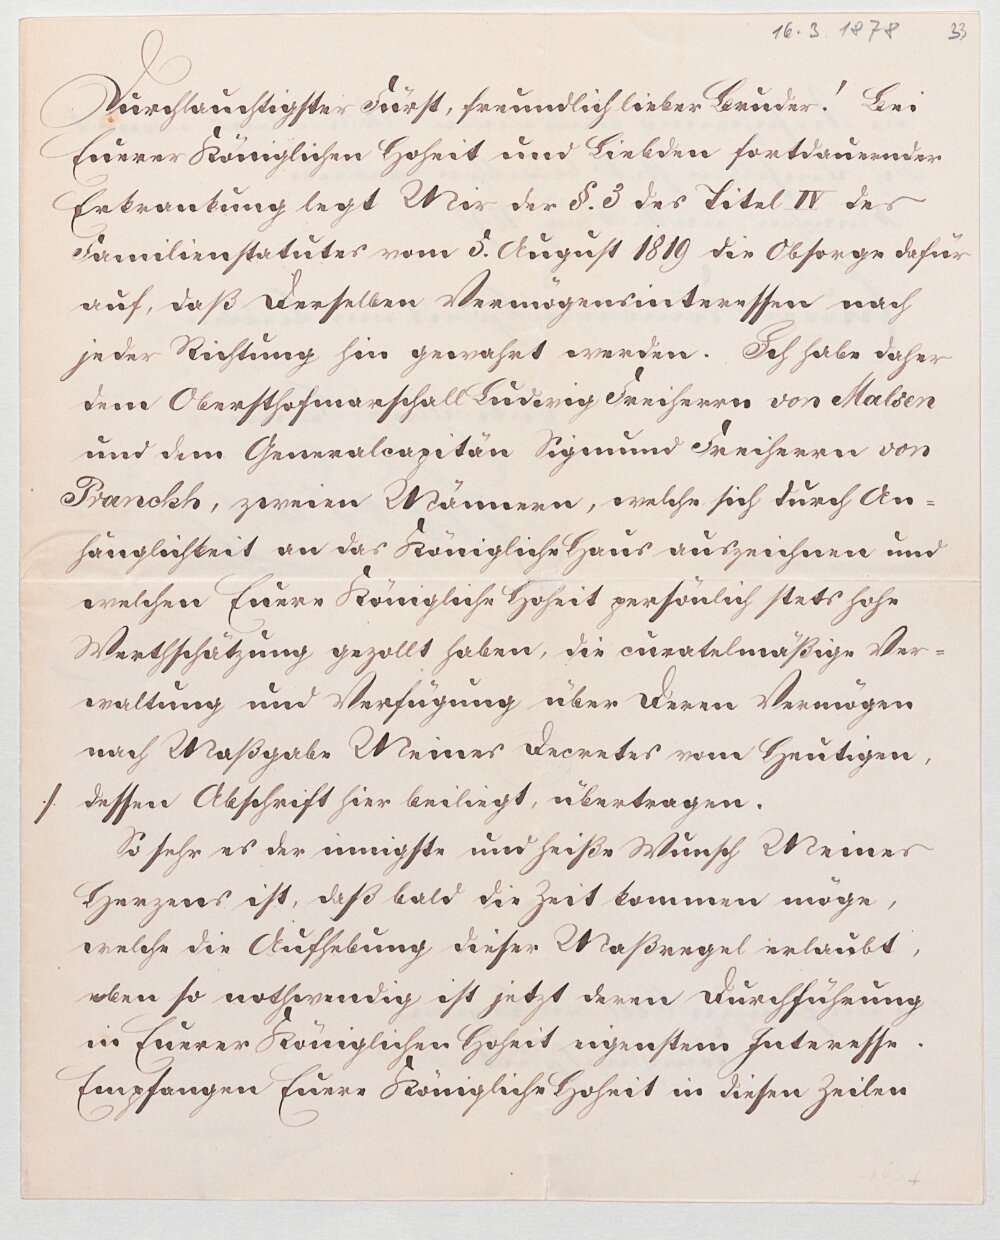 16. 3. 1878 33
Durchlauchtigster Fürst, freundlich lieber Bruder! Bei
Euerer Königlichen Hoheit und Liebden fortdauernder
Erkrankung legt Mir der §. 3 des Titel IV des
Familienstatutes vom 5. August 1819 die Obsorge dafür
auf, daß Derselben Vermögensinteressen nach
jeder Richtung hin gewahrt werden. Ich habe daher
dem Obersthofmarschall Ludwig Freiherrn von Malsen
und dem Generalcapitän Sigmund Freiherrn von
Pranckh, zweien Männern, welche sich durch An=
hänglichkeit an das Königliche Haus auszeichnen und
welchen Euere Königliche Hoheit persönlich stets hohe
Werthschätzung gezollt haben, die curatelmäßige Ver=
waltung und Verfügung über Deren Vermögen
nach Maßgabe Meines Decretes vom Heutigen,
./. dessen Abschrift hier beiliegt, übertragen.
So sehr es der innigste und heiße Wunsch Meines
Herzens ist, daß bald die Zeit kommen möge,
welche die Aufhebung dieser Maßregel erlaubt,
eben so nothwendig ist jetzt deren Durchführung
in Euerer Königlichen Hoheit eigenstem Interesse.
Empfangen Euere Königliche Hoheit in diesen Zeilen